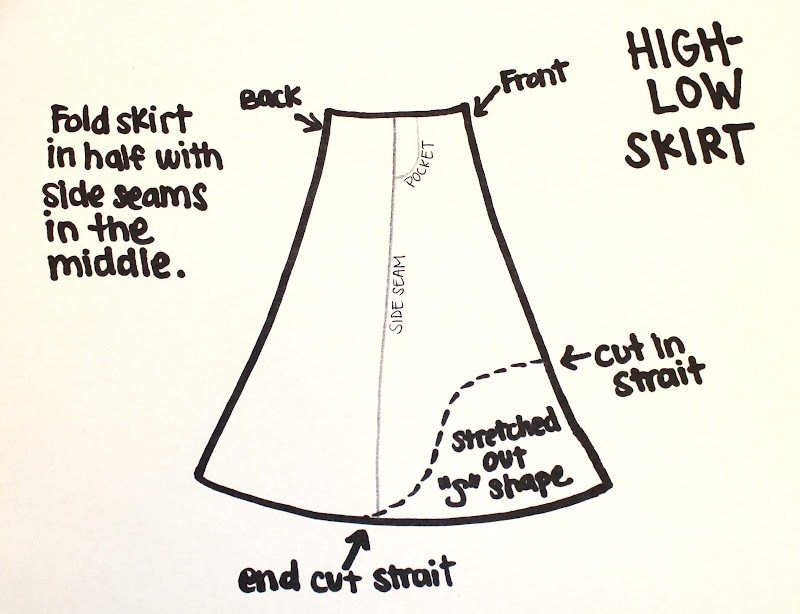 HIGH-
LOW
SKIRT
Fold skirt
in half with
side seams
in the
middle.
Back
Front
POCKET
SIDE SEAM
cut in
strait
stretched
out
"S" shape
end cut strait